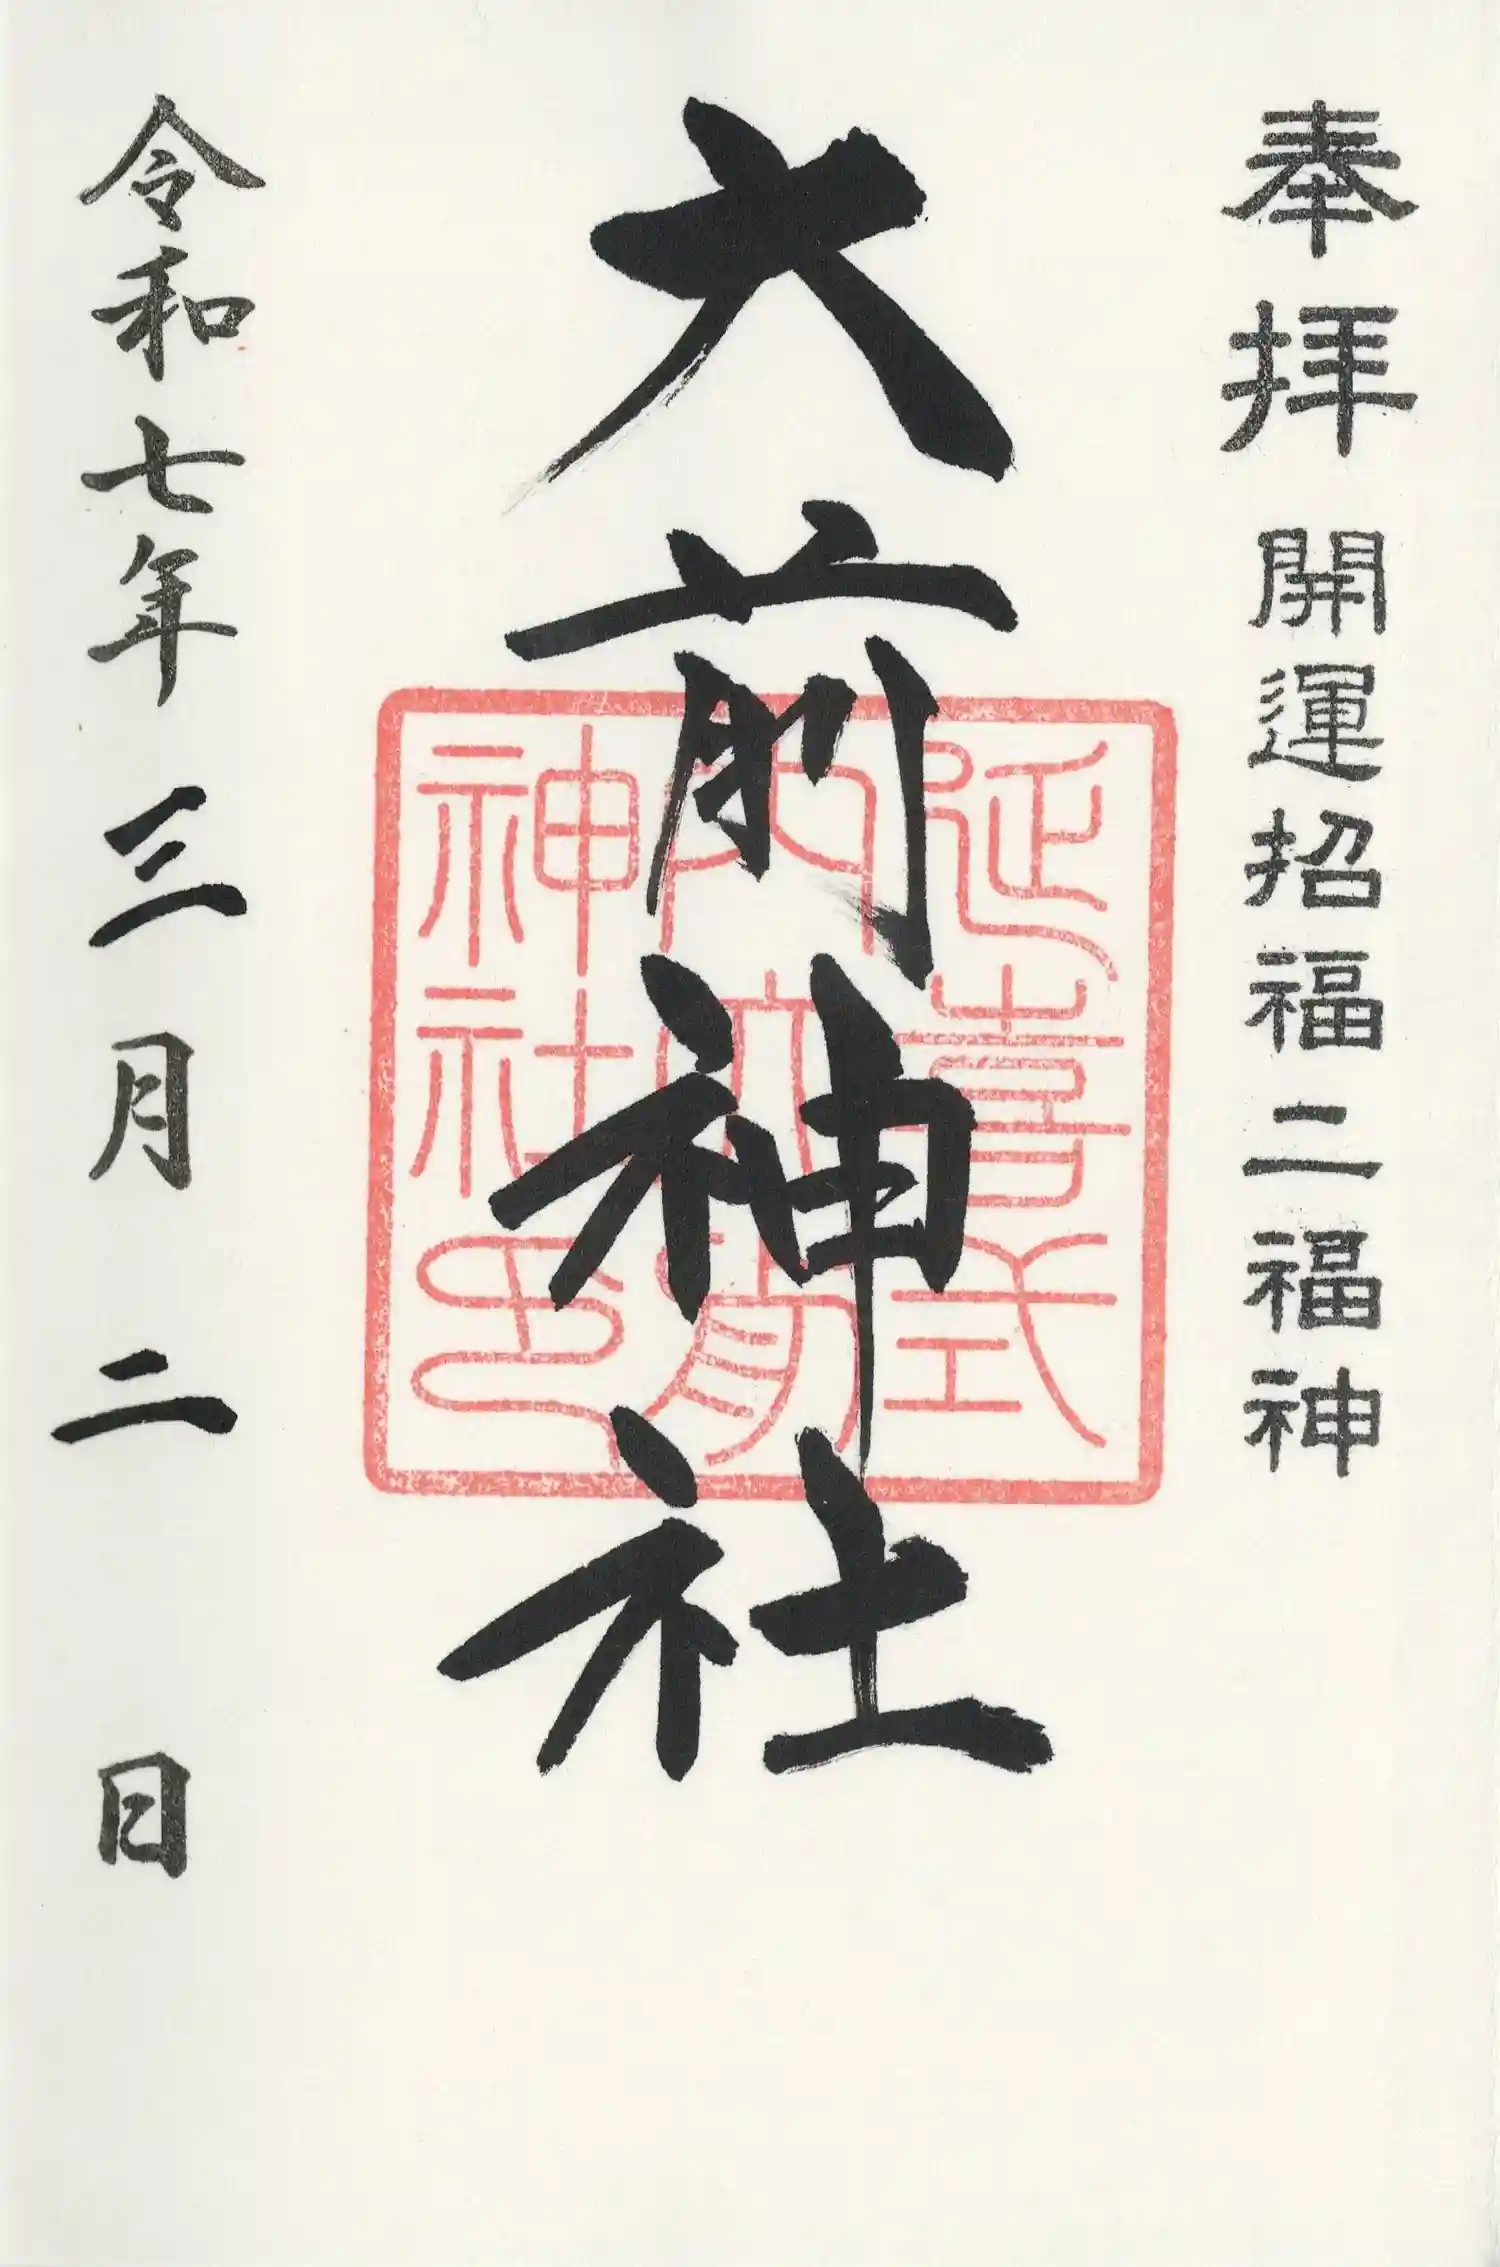 奉拝 開運招福二福神
大前神社
延喜式
内大前
神社印
令和七年 三月 二 日